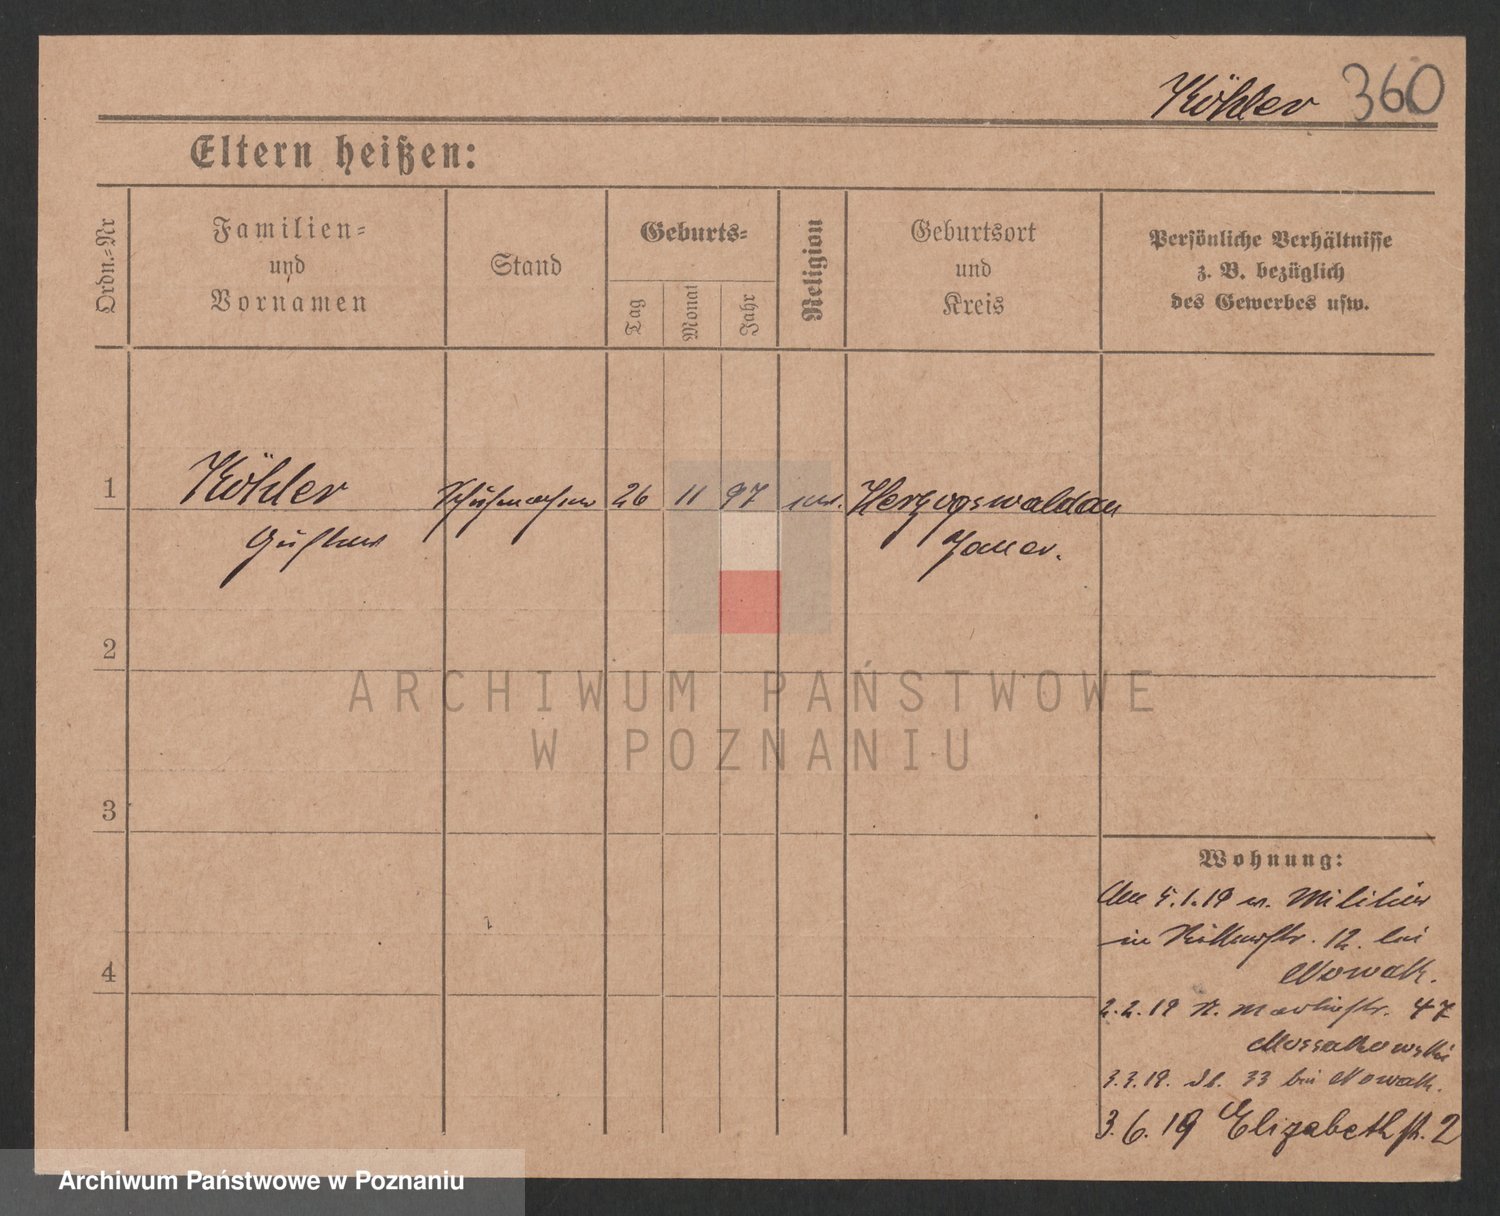 Köhler 360
Eltern heißen:
Ordn.-Nr
Familien-
und
Vornamen
Stand
Geburts-
Tag
Monat
Jahr
Religion
Geburtsort
und
Kreis
Persönliche Verhältnisse
z. B. bezüglich
des Gewerbes usw.
1 Köhler Schuhmacher 26 11 97 Herzogswaldau
Gustav Jauer.
2
3
4
ARCHIWUM PAŃSTWOWE
W POZNANIU
Wohnung:
Am 5.1.19 v. Militär
in Ritterstr. 12. bei
Nowak.
2.2.19 St. Martinstr. 47
Mossakowski
3.3.19. 33 bei Nowak.
3.6.19 Elizabethstr. 2
Archiwum Państwowe w Poznaniu